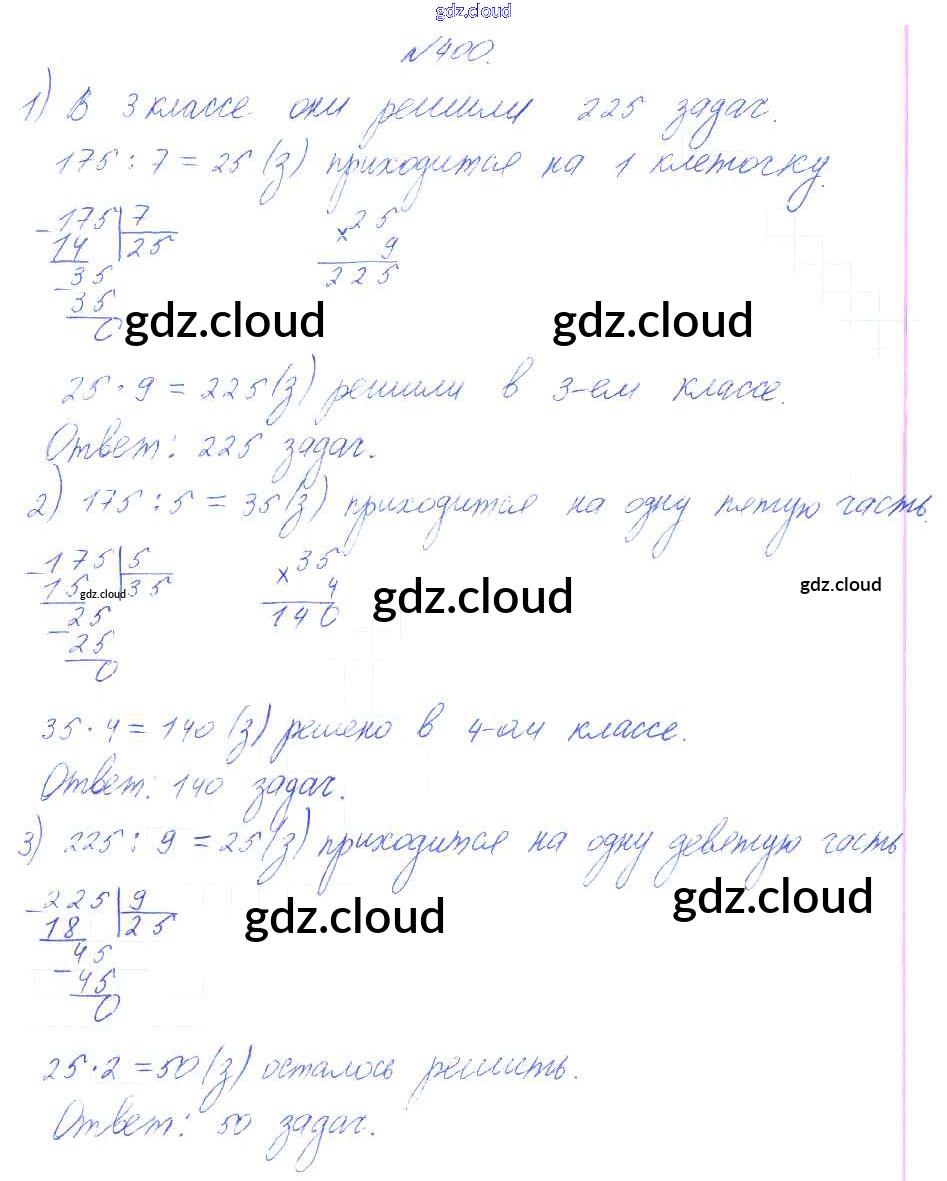 gdz.cloud
№400.
1) В 3 классе они решили 225 задач.
175 : 7 = 25 (з) приходится на 1 клеточку.
- 175 7
14 25
- 35
35
0
× 25
9
225
gdz.cloud gdz.cloud
25 · 9 = 225 (з) решили в 3-ем классе.
Ответ: 225 задач.
2) 175 : 5 = 35 (з) приходится на одну пятую часть.
- 175 5
15 35
gdz.cloud
- 25
25
0
× 35
4
140
gdz.cloud gdz.cloud
35 · 4 = 140 (з) решено в 4-ом классе.
Ответ: 140 задач.
3) 225 : 9 = 25 (з) приходится на одну девятую часть
- 225 9
18 25
- 45
45
0
gdz.cloud gdz.cloud
25 · 2 = 50 (з) осталось решить.
Ответ: 50 задач.